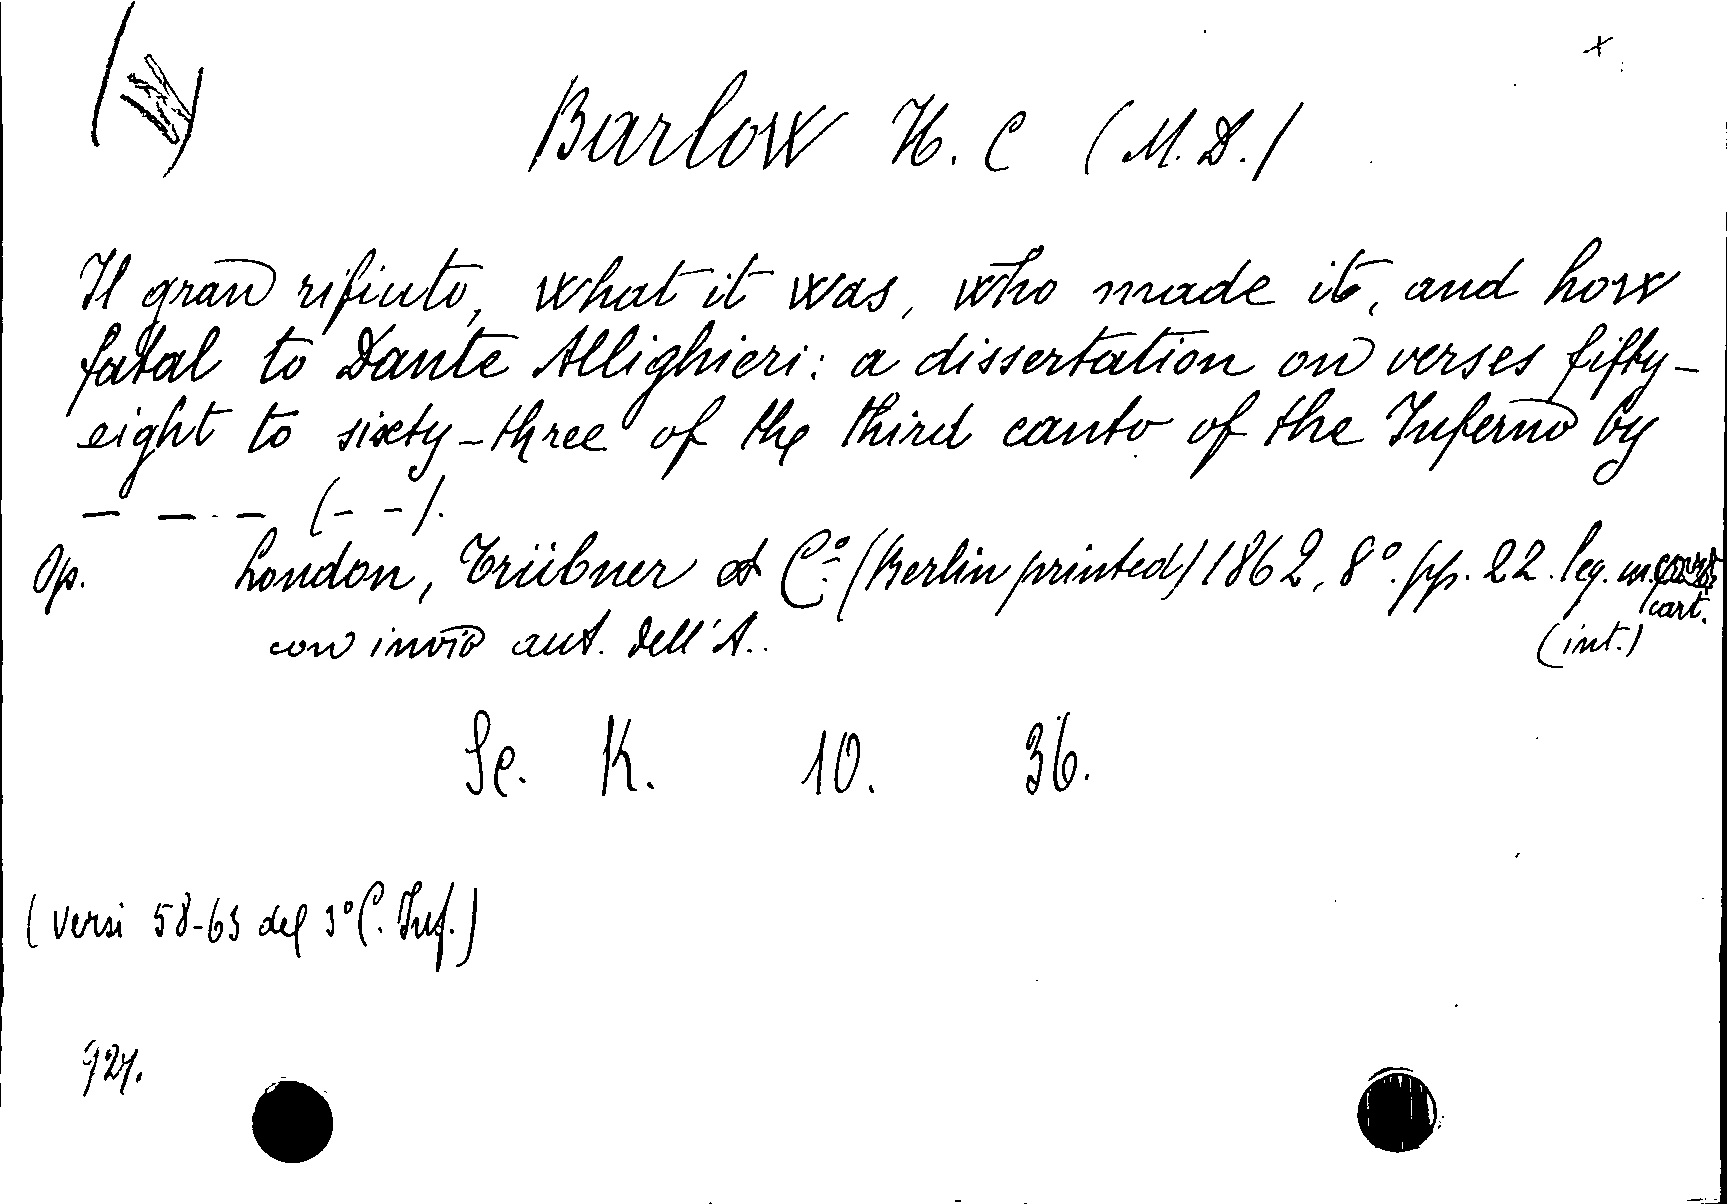 +
Barlow H. C (M. D.)
Il gran rifiuto, what it was, who made it, and how
fatal to Dante Allighieri: a dissertation on verses fifty-
eight to sixty-three of the third canto of the Inferno by
— — . — (- -).
Op. London, Trübner et Cº. (Berlin printed) 1862, 8º. pp. 22. leg. in
cart.
con invio aut. dell'A.. (int.)
Se. K. 10. 36.
(versi 58-63 del 3º C. Inf.)
927.